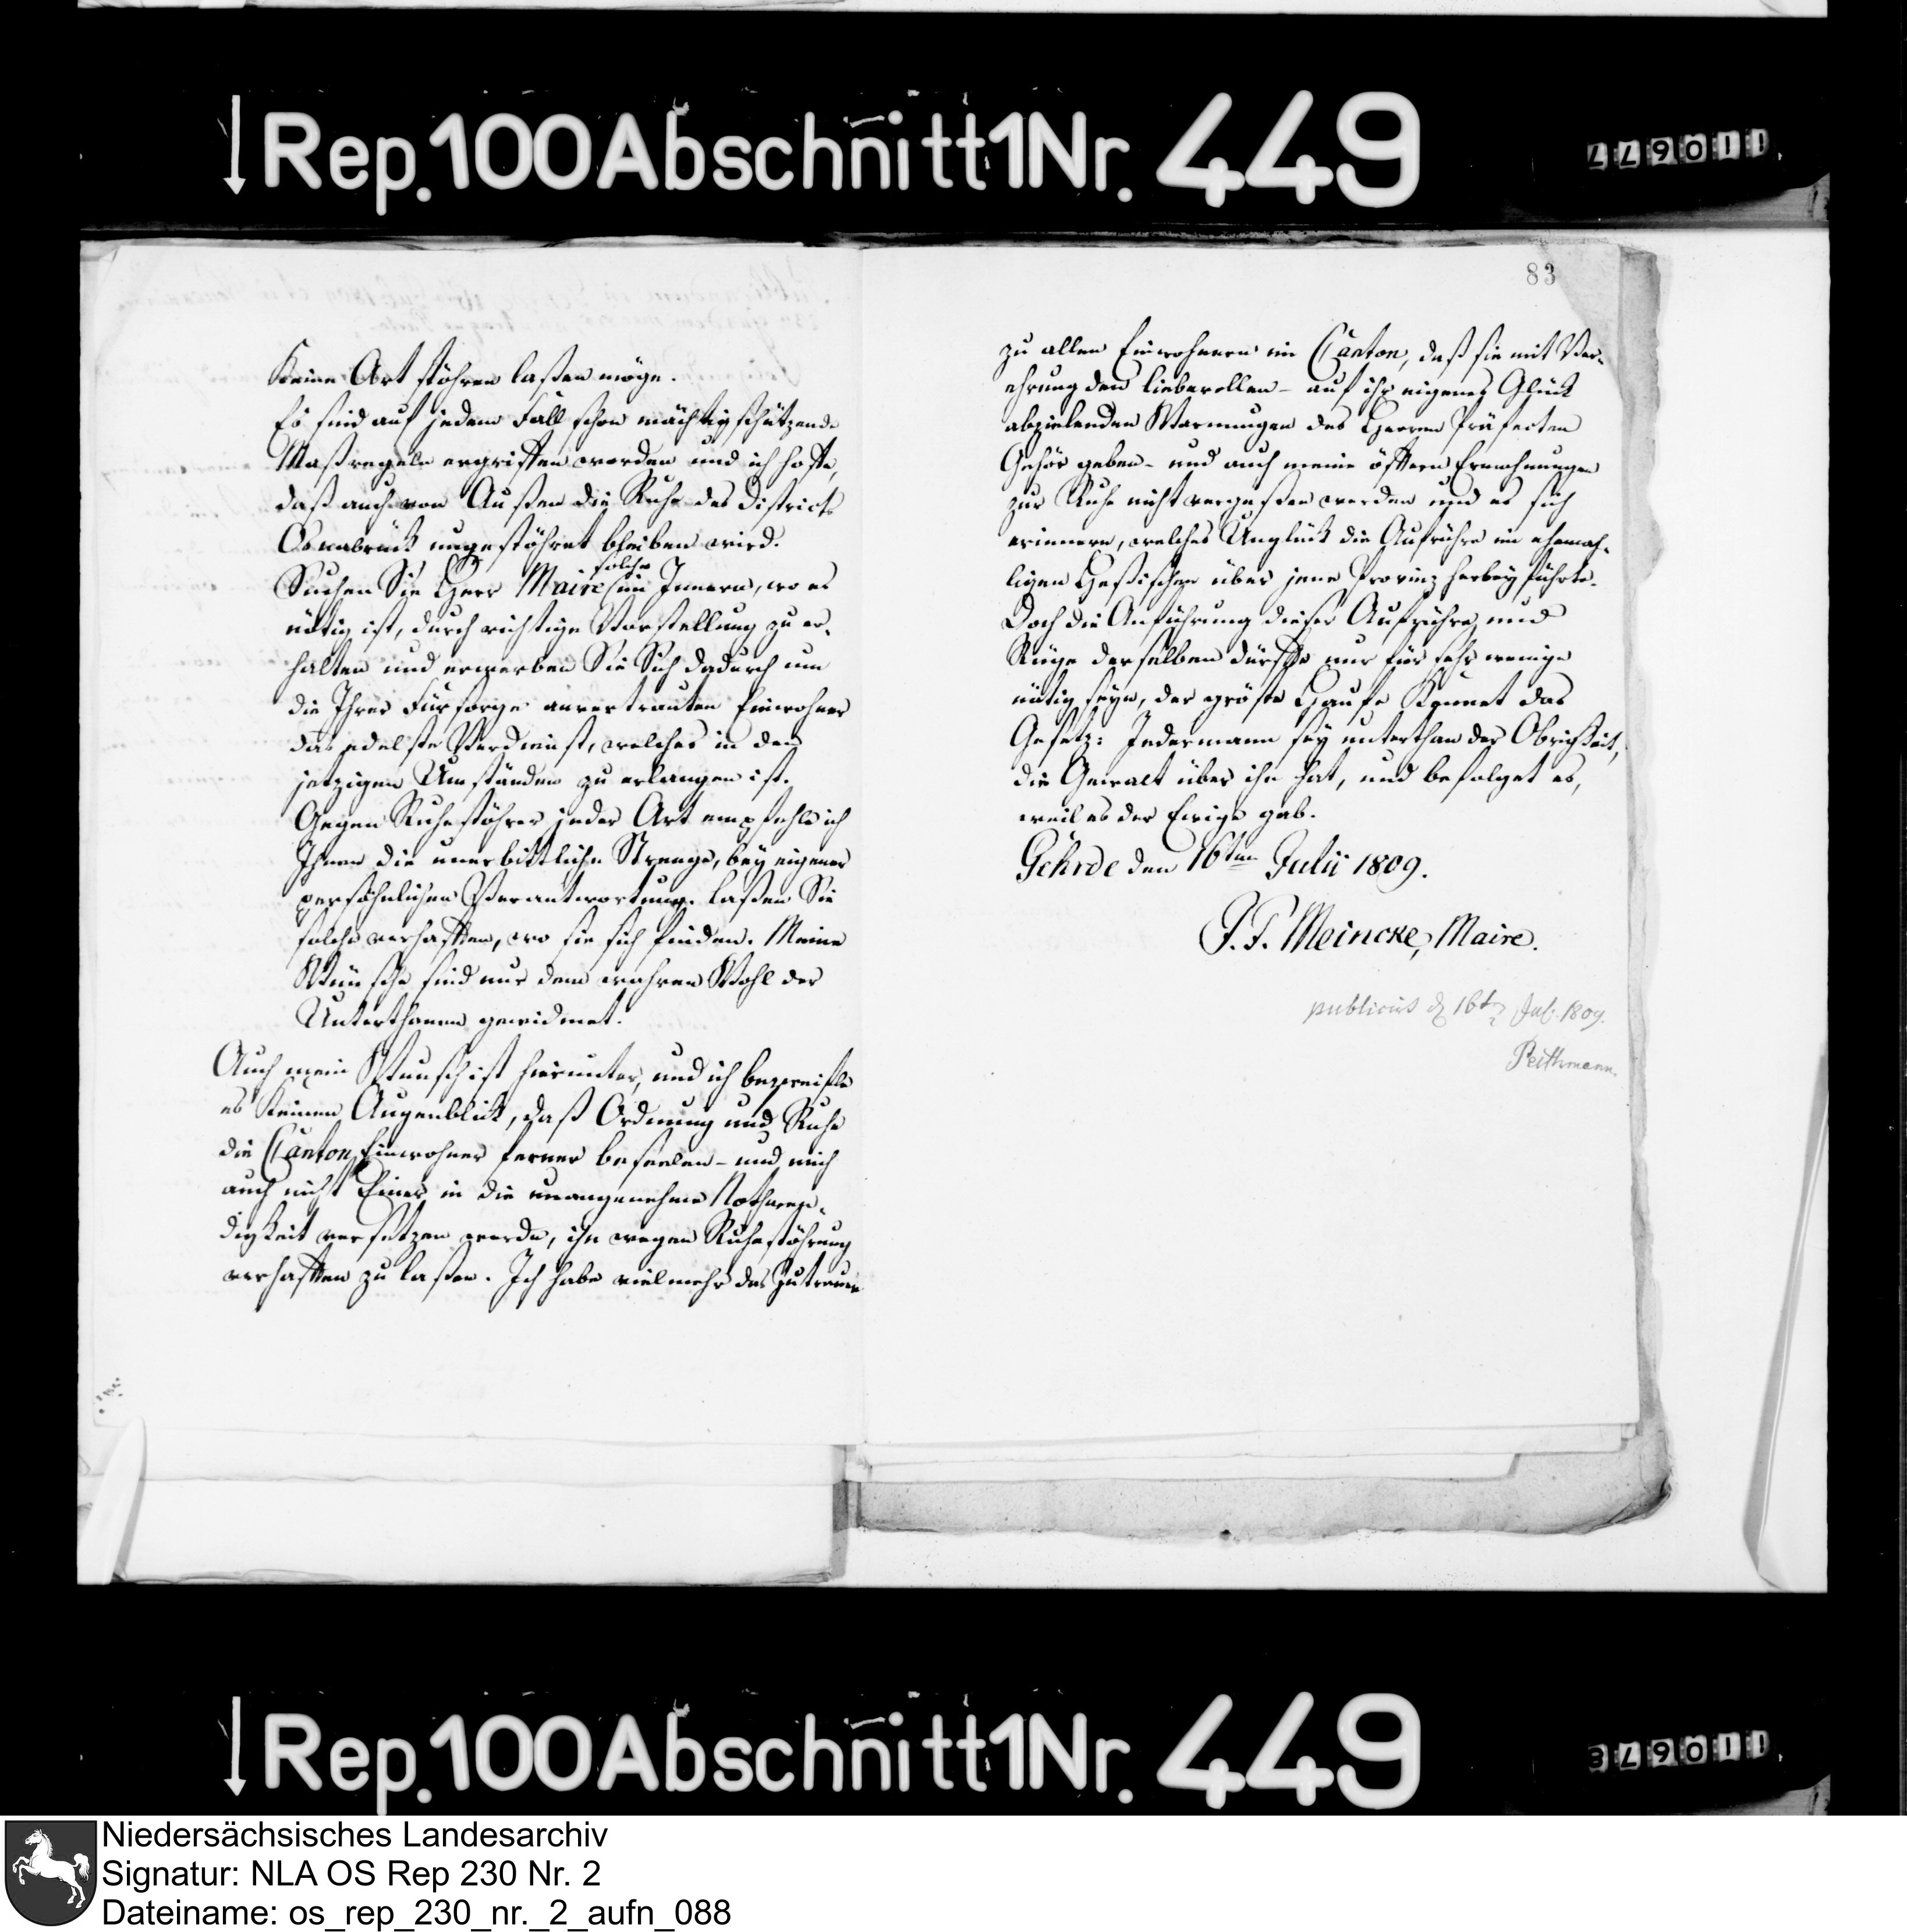 Rep.100Abschnitt1Nr.449
110677
Keine Art stöhren laßen möge.
Es sind auf jedem Fall schon mächtig schützende
Maßregeln ergriffen worden und ich hoffe,
daß auch von Außen die Ruhe des Districts
Osnabrück ungestöhret bleiben wird.
Suchen Sie Herr Maire solche im Innern, wo es
nötig ist, durch richtige Vorstellung zu er-
halten und erwerben Sie Sich dadurch um
die Ihrer Fürsorge anvertrauten Einwohner
das edelste Verdienst, welches in den
jetzigen Umständen zu erlangen ist.
Gegen Ruhestöhrer jeder Art empfehle ich
Ihnen die unerbittliche Strenge, bey eigener
persöhnlichen Verantwortung. laßen Sie
solche verhaften, wo sie sich finden. Meine
Wünsche sind nur dem wahren Wohl der
Unterthanen gewidmet.
Auch mein Wunsch ist hierunter, und ich bezweifle
es keinen Augenblick, daß Ordnung und Ruhe
die Canton Einwohner ferner beseelen - und mich
auch nicht Einer in die unangenehme Nothwen-
digkeit versetzen werde, ihn wegen Ruhestöhrung
verhaften zu laßen. Ich habe vielmehr das Zutrauen
83
zu allen Einwohnern im Canton, daß sie mit Ver-
ehrung den liebevollen - auf ihr eigenes Glück
abzielenden Warnungen des Herren Präfecten
Gehör geben - und auch meine öftern Ermahnungen
zur Ruhe nicht vergeßen werden und es sich
erinnern, welches Unglück die Aufrühre im ehemah-
ligen Heßischen über jene Provinz herbey führte.
Doch die Anführung dieser Aufrühre und
Rüge derselben dürfte nur für sehr wenige
nötig seyn, der gröste Haufe kennet das
Gesetz: Jedermann sey unterthan der Obrigkeit,
die Gewalt über ihn hat, und befolget es,
weil es der Ewige gab.
Gehrde den 16ten Julii 1809.
J. F. Meincke, Maire.
publicirt d 16t Jul. 1809.
Peithmann.
Rep.100Abschnitt1Nr.449
110678
Niedersächsisches Landesarchiv
Signatur: NLA OS Rep 230 Nr. 2
Dateiname: os_rep_230_nr._2_aufn_088